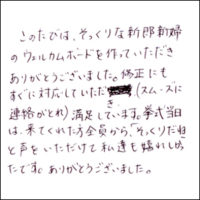 このたびは、そっくりな新郎新婦
のウェルカムボードを作っていただき
ありがとうございました。修正にも
すぐに対応していただき(スムーズに
連絡がとれ)満足しています。挙式当日
は、来てくれた方全員から、「そっくりだね」
と声をいただけて私達も嬉しかっ
たです。ありがとうございました。